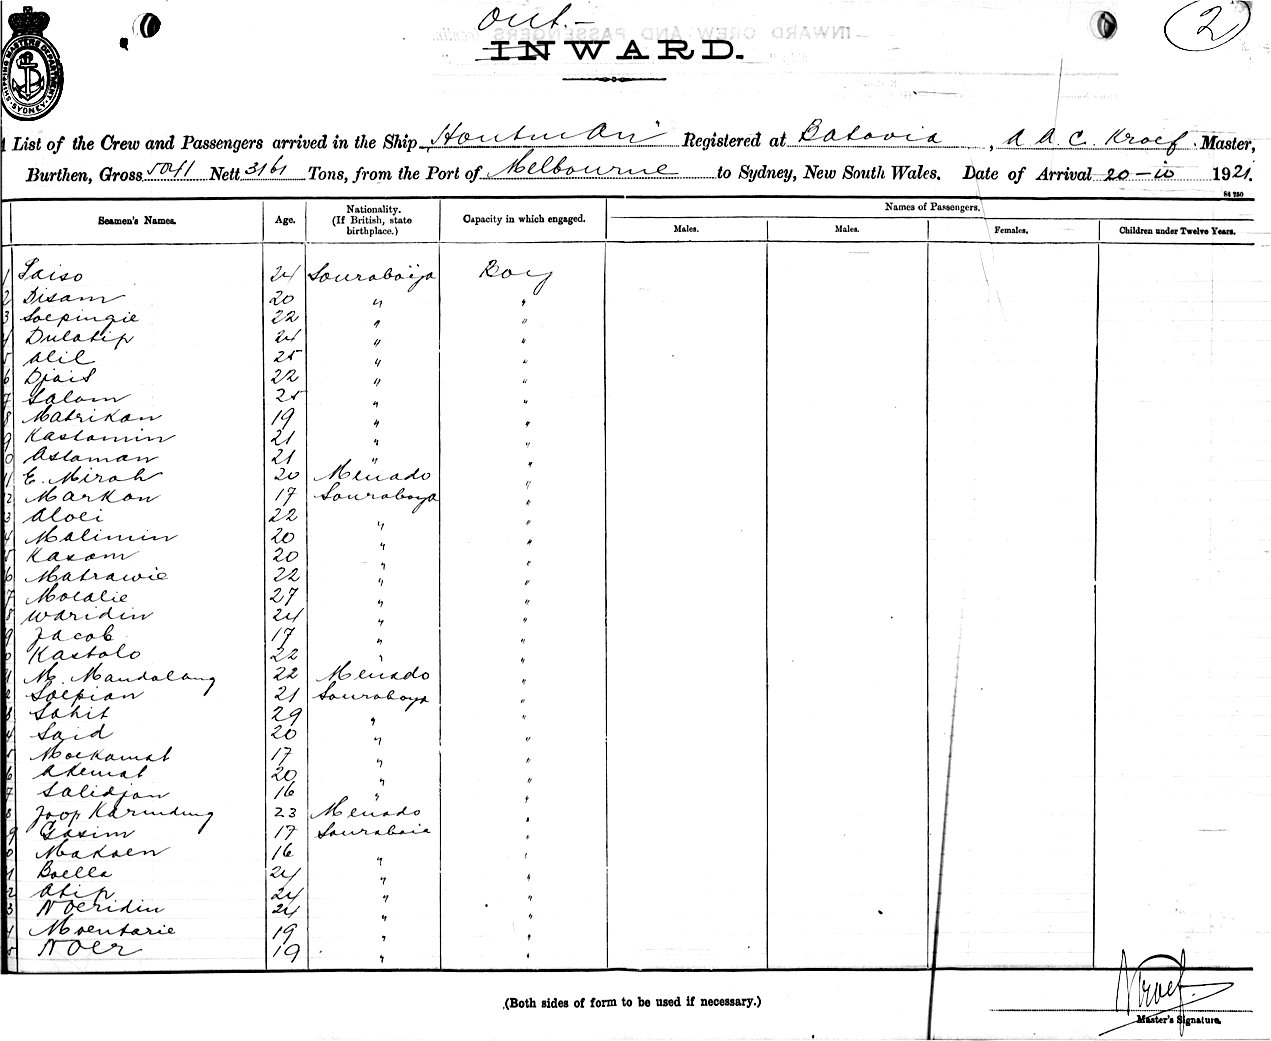 Out.-
INWARD.
2
SHIPPING MASTERS DEPARTMENT SYDNEY
List of the Crew and Passengers arrived in the Ship "Houtman" Registered at Batavia, A. A. C. Kroef. Master,
Burthen, Gross 5041 Nett 3161 Tons, from the Port of Melbourne to Sydney, New South Wales. Date of Arrival 20-10 1921.
Seamen's Names. Age. Nationality. (If British, state birthplace.) Capacity in which engaged. Names of Passengers.
Males. Males. Females. Children under Twelve Years.
1 Saiso 24 Sourabaija Boy
2 Disam 20 " "
3 Soepingie 22 " "
4 Dulatip 24 " "
5 Alil 25 " "
6 Djais 22 " "
7 Salam 25 " "
8 Matrikan 19 " "
9 Kastamin 21 " "
0 Astaman 21 " "
1 E. Mirah 20 Menado "
2 Markan 17 Souraboya "
3 Aloei 22 " "
4 Malimin 20 " "
5 Kasam 20 " "
6 Matrawie 22 " "
7 Motalie 27 " "
8 Waridin 24 " "
9 Jacob 17 " "
0 Kastolo 22 " "
1 M. Mandalang 22 Menado "
2 Soepian 21 Souraboya "
3 Sahit 29 " "
4 Said 20 " "
5 Moekamat 17 " "
6 Atemat 20 " "
7 Salidjan 16 " "
8 Joop Karunding 23 Menado "
9 Gasim 17 Sourabaia "
0 Makaen 16 " "
1 Boella 24 " "
2 Atip 24 " "
3 Noeridin 24 " "
4 Moentarie 19 " "
5 Noer 19 " "
(Both sides of form to be used if necessary.)
Kroef.
Master's Signature.